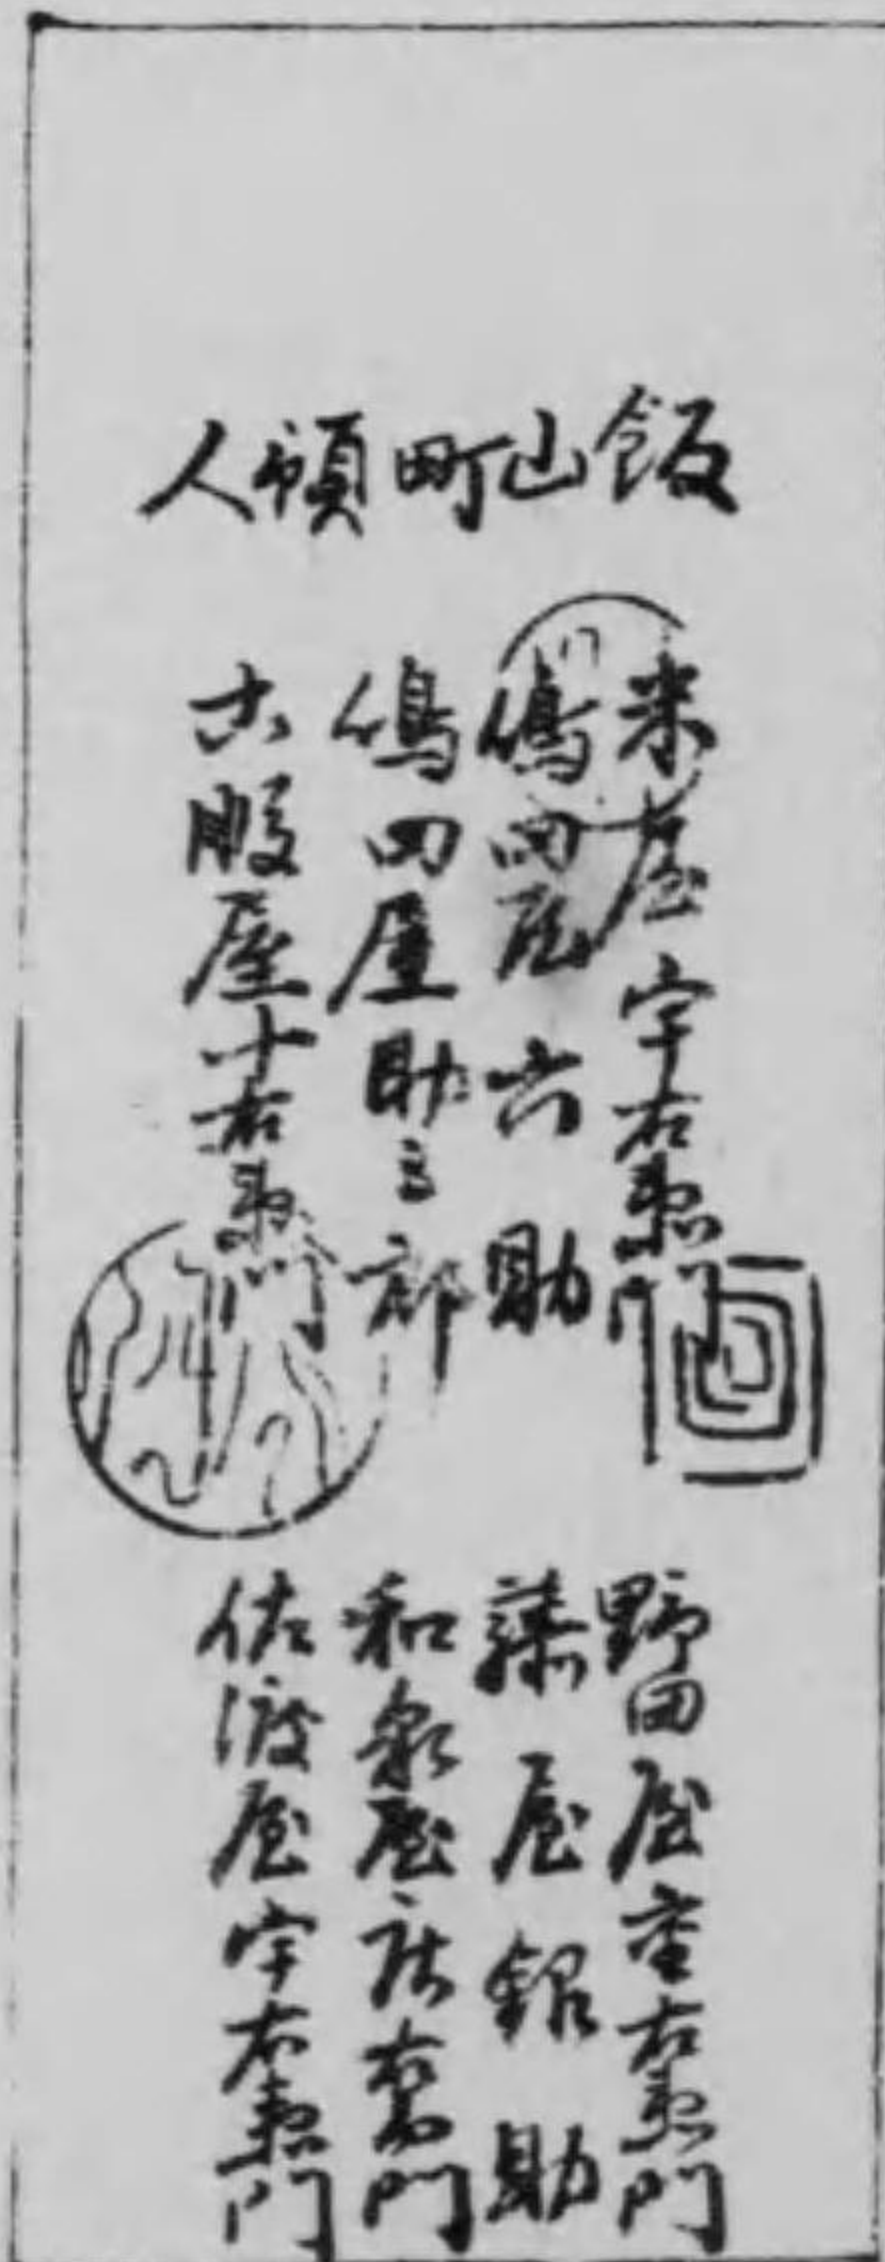 飯山町願人
米屋宇右衛門
嶋田屋六助
嶋田屋助三郎
古股屋十右衛門
野田屋重右衛門
藤屋銀助
和泉屋庄右衛門
佐渡屋宇右衛門